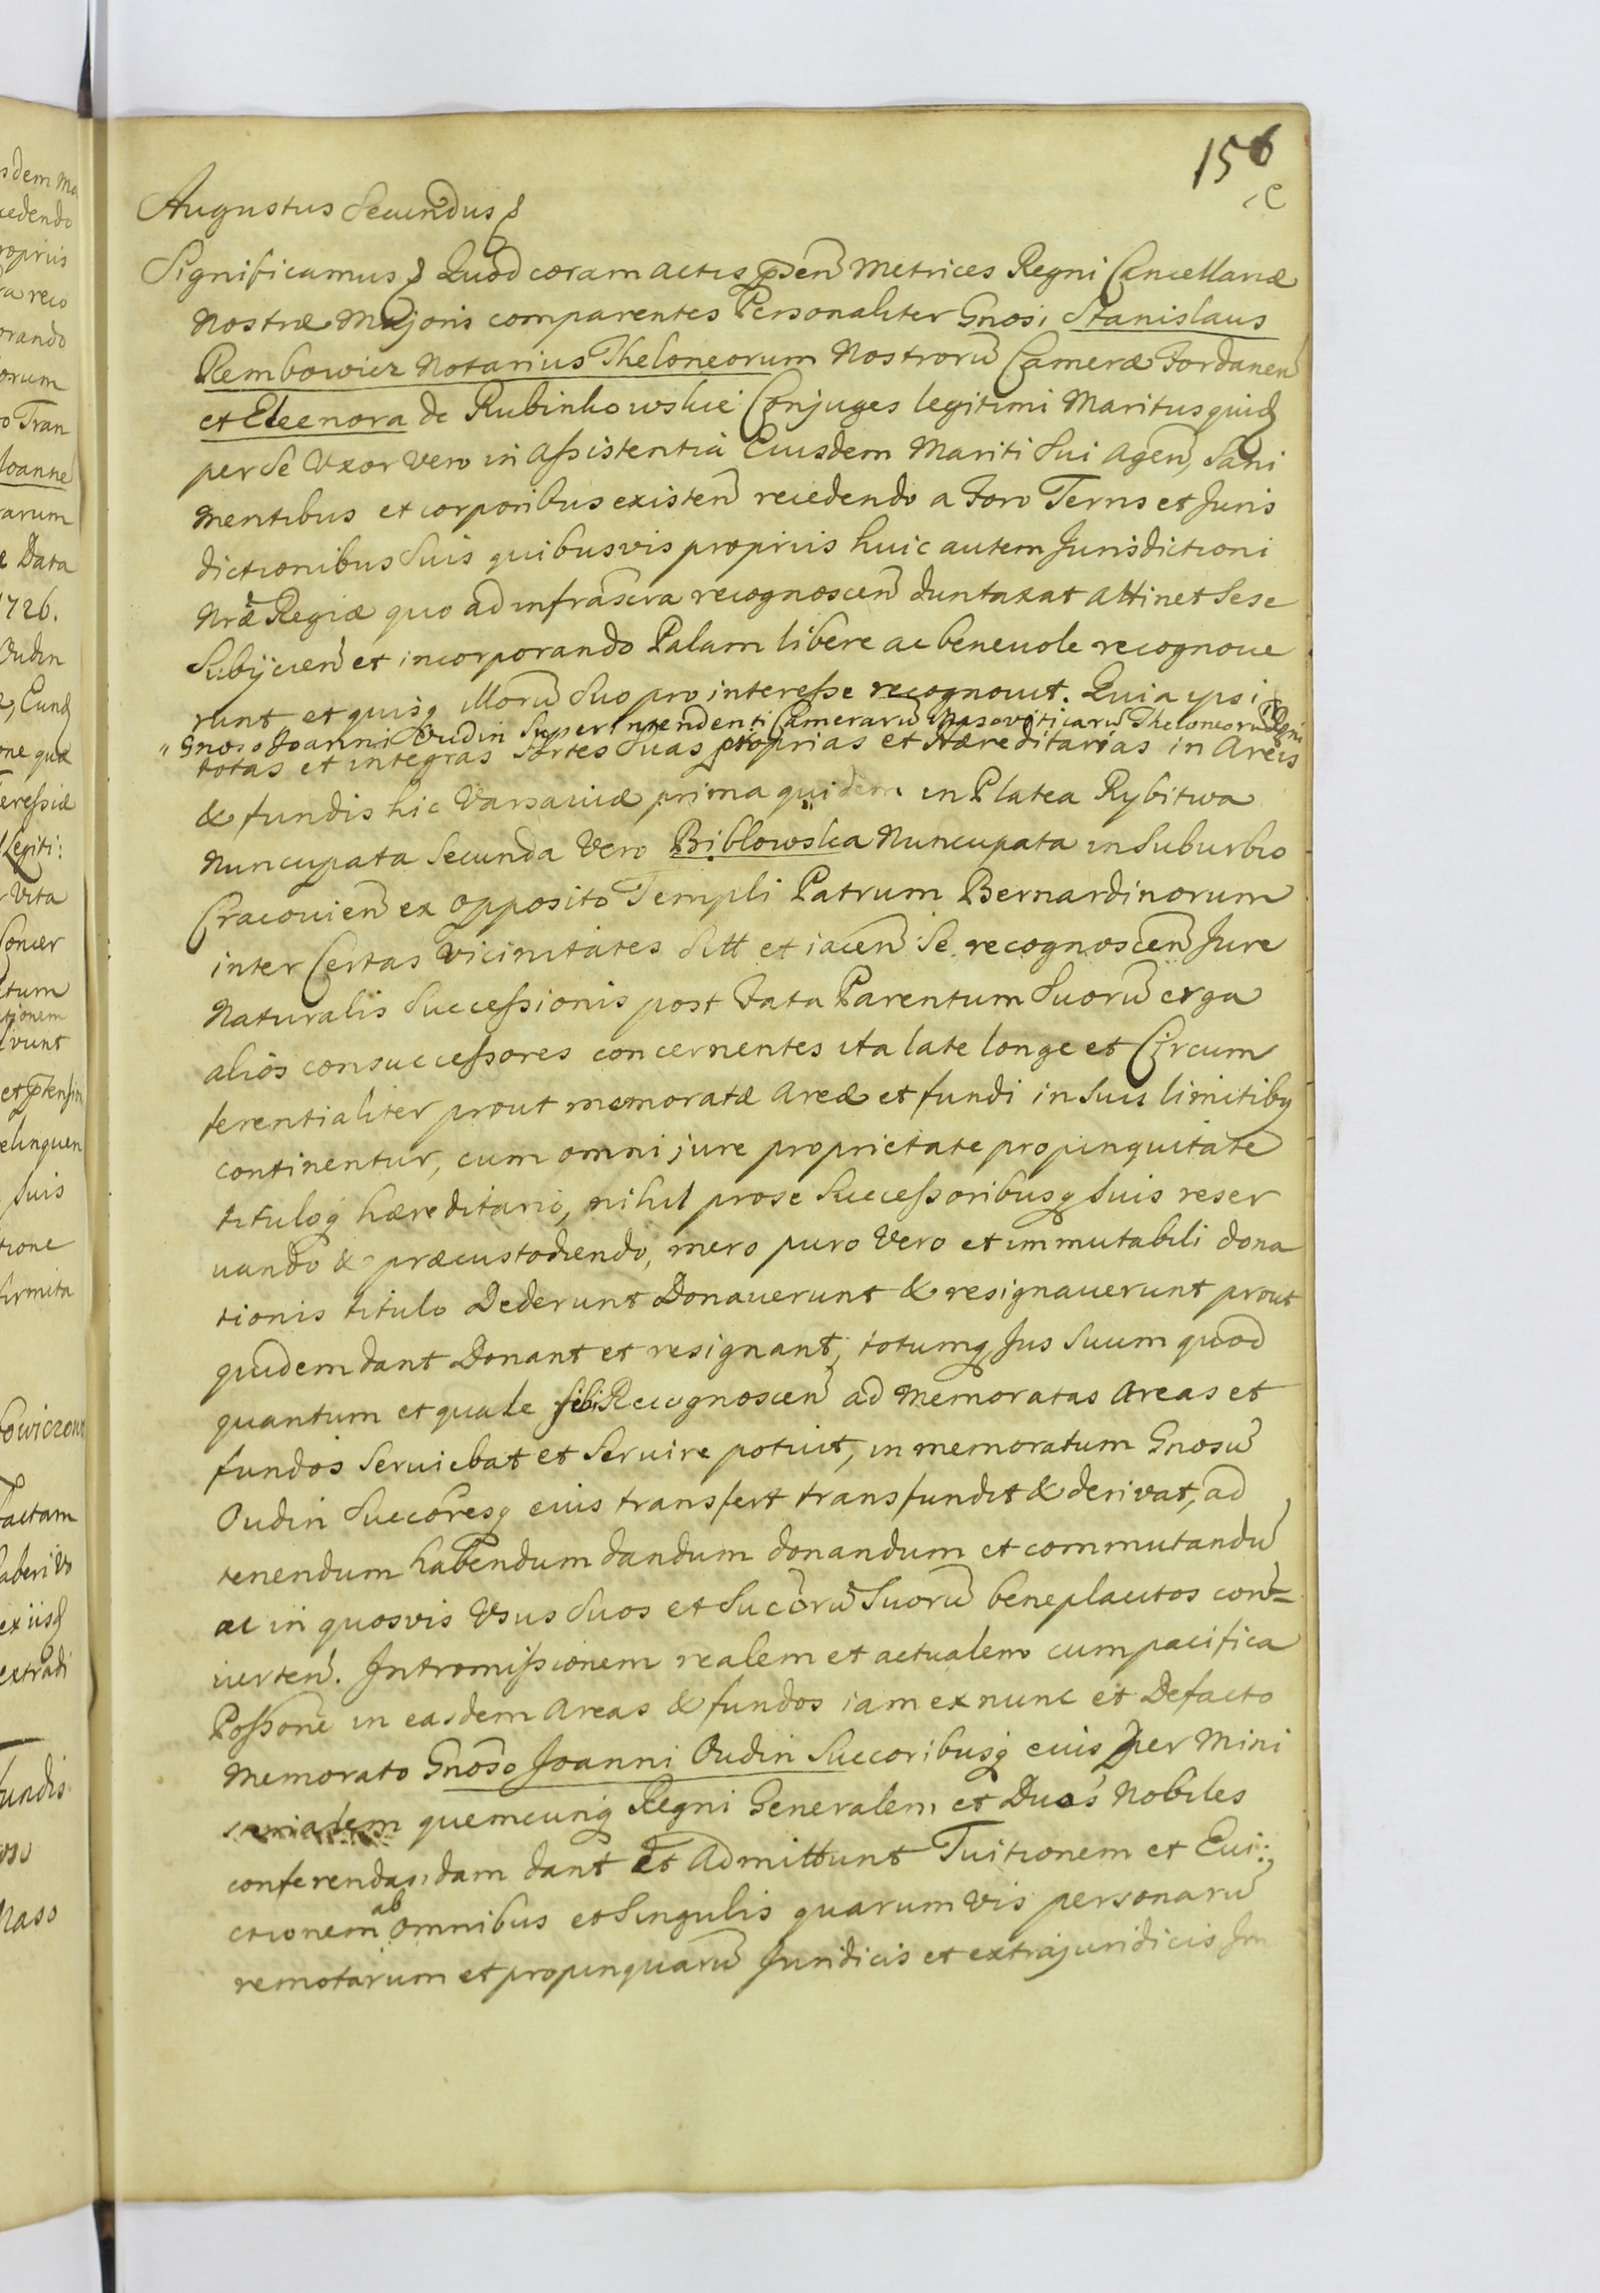 156
Augustus Secundus
Significamus Quod coram actis p̃sen̄ Metrices Regni Cancellariæ
Nostræ Majoris comparentes Personaliter Gnosi Stanislaus
Rembowicz Notarius Theloneorum Nostrorū Cameræ Fordanen̄
et Eleenora de Rubinkowskie Conjuges legitimi Maritus quid
per se Uxor vero in assistentia Eiusdem Mariti sui agen̄, sani
mentibus et corporibus existen̄ recedendo a Foro Terris et Juris
dictionibus suis quibusvis propriis huic autem Jurisdictioni
Nræ Regiæ quo ad infrascra recognoscen̄ duntaxat attinet sese
Subijcien̄ et incorporando Palam libere ac beneuole recognoue
runt et quisq illorū suo pro interesse recognouit. Quia ipsi
Gnoso Joanni Oudin Super Intendenti Camerarū Masoviticarū Theloneorū Regni
totas et integras Sortes suas proprias et Hæreditarias in Areis
& fundis hic Varsauiæ prima quidem in Platea Rybitwa
Nuncupata Secunda Vero Biblowska Nuncupata in Suburbio
Cracouien̄ ex opposito Templi Patrum Bernardinorum
inter Certas vicinitates Sitt et iacen̄ se recognoscen̄ Jure
Naturalis Successionis post Fata Parentum Suorū erga
alios consuccessores concernentes ita late longe et Circum
ferentialiter prout memoratæ areæ et fundi in suis limitibq
continentur, cum omni jure proprietate propinquitate
tituloq hæreditario, nihil pro se Successoribusq suis reser
uando & præcustodiendo, mero puro Vero et immutabili dona
tionis titulo Dederunt Donauerunt & resignauerunt prout
quidem dant Donant et resignant, totumq Jus suum quod
quantum et quale sibi Recognoscen̄ ad memoratas Areas et
fundos Seruiebat et Seruire potuit, in memoratum Gnosū
Oudin Succoresq eius transfert transfundit & derivat, ad
tenendum habendum dandum donandum et commutandū
ac in quosvis Usus suos et Succorū Suorū beneplacitos con=
uerten̄. Intromissionem realem et actualem cum pacifica
Possone in easdem Areas & fundos iam ex nunc et Defacto
Memorato Gnoso Joanni Oudin Succoribusq eius per Mini
sterialem quemcunq Regni Generalem et Duos Nobiles
conferendam dant et Admittunt Tuitionem et Eui:
ctionem ab omnibus et Singulis quarumvis personarū
remotarum et propinquarū Juridicis et extrajuridicis